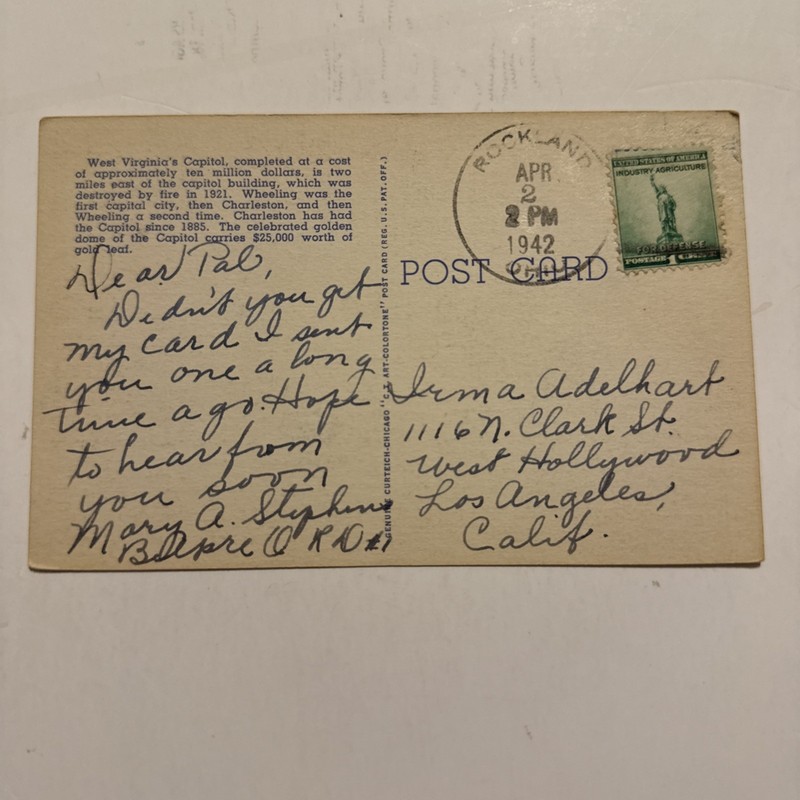 West Virginia's Capitol, completed at a cost
of approximately ten million dollars, is two
miles east of the capitol building, which was
destroyed by fire in 1921. Wheeling was the
first capital city, then Charleston, and then
Wheeling a second time. Charleston has had
the Capitol since 1885. The celebrated golden
dome of the Capitol carries $25,000 worth of
gold leaf.
Dear Pal,
Didn't you get
my card I sent
you one a long
time ago. Hope
to hear from
you soon
Mary A. Stephens
Belpre O R D #1
GENUINE CURTEICH-CHICAGO "C.T. ART-COLORTONE" POST CARD (REG. U.S. PAT. OFF.)
ROCKLAND
APR
2
2 PM
1942
OHIO
UNITED STATES OF AMERICA
INDUSTRY AGRICULTURE
FOR DEFENSE
POSTAGE 1 CENT
POST CARD
Irma Adelhart
1116 N. Clark St.
West Hollywood
Los Angeles,
Calif.